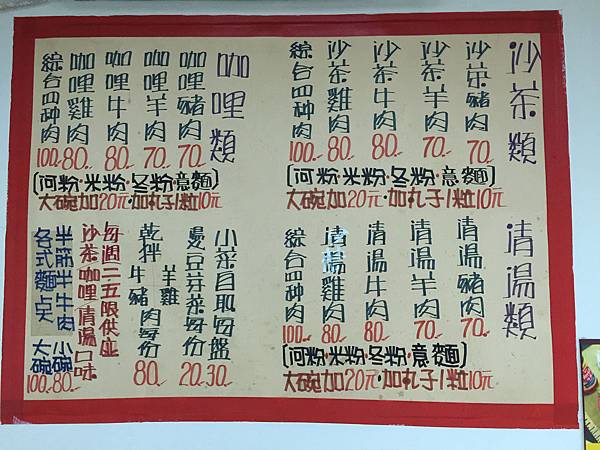 沙茶類
沙茶豬肉 70.
沙茶羊肉 70.
沙茶牛肉 80.
沙茶雞肉 80.
綜合四种肉 100.
(河粉·米粉·冬粉·意麵)
大碗加20元·加丸子1粒10元
咖哩類
咖哩豬肉 70.
咖哩羊肉 70.
咖哩牛肉 80.
咖哩雞肉 80.
綜合四种肉 100.
(河粉·米粉·冬粉·意麵)
大碗加20元·加丸子1粒10元
清湯類
清湯豬肉 70.
清湯羊肉 70.
清湯牛肉 80.
清湯雞肉 80.
綜合四种肉 100.
(河粉·米粉·冬粉·意麵)
大碗加20元·加丸子1粒10元
小菜自取每盤 30.
燙豆芽菜每份 20.
乾拌 羊雞 牛豬 肉每份 80.
每週二五限供应
沙茶咖哩清湯口味
半筋半牛肉 小碗 80.
各式麵点 大碗 100.